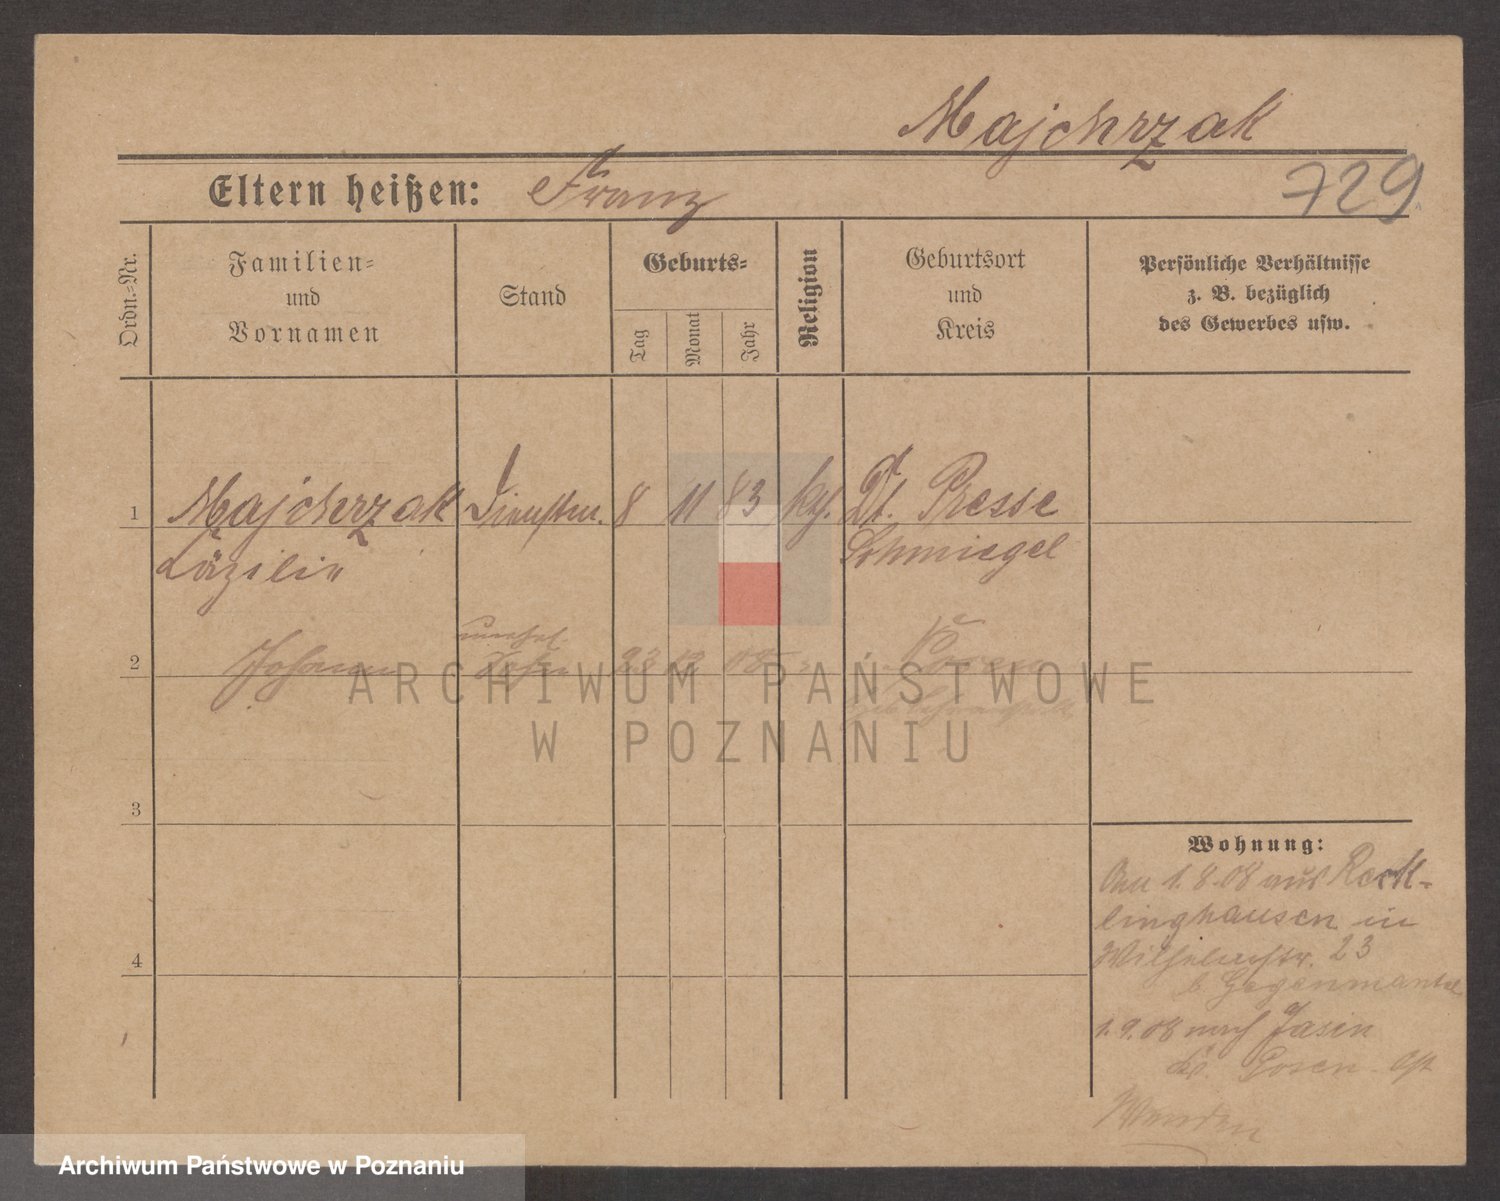 Majchrzak
Eltern heißen: Franz
729
Ordn.-Nr.
Familien-
und
Vornamen
Stand
Geburts-
Tag
Monat
Jahr
Religion
Geburtsort
und
Kreis
Persönliche Verhältnisse
z. B. bezüglich
des Gewerbes usw.
1 Majchrzak Dienstm. 8 11 83 kth. Dt. Presse
Cäzilie Schmiegel
unehel.
2 Johann Sohn 23 12 08 Posen
3
Wohnung:
Am 1.8.08 aus Reck-
linghausen in
Wilhelmstr. 23
b. Gegenmantel
4
1.9.08 nach Jasin
Kr. Posen Ost
ARCHIWUM PAŃSTWOWE
W POZNANIU
Archiwum Państwowe w Poznaniu